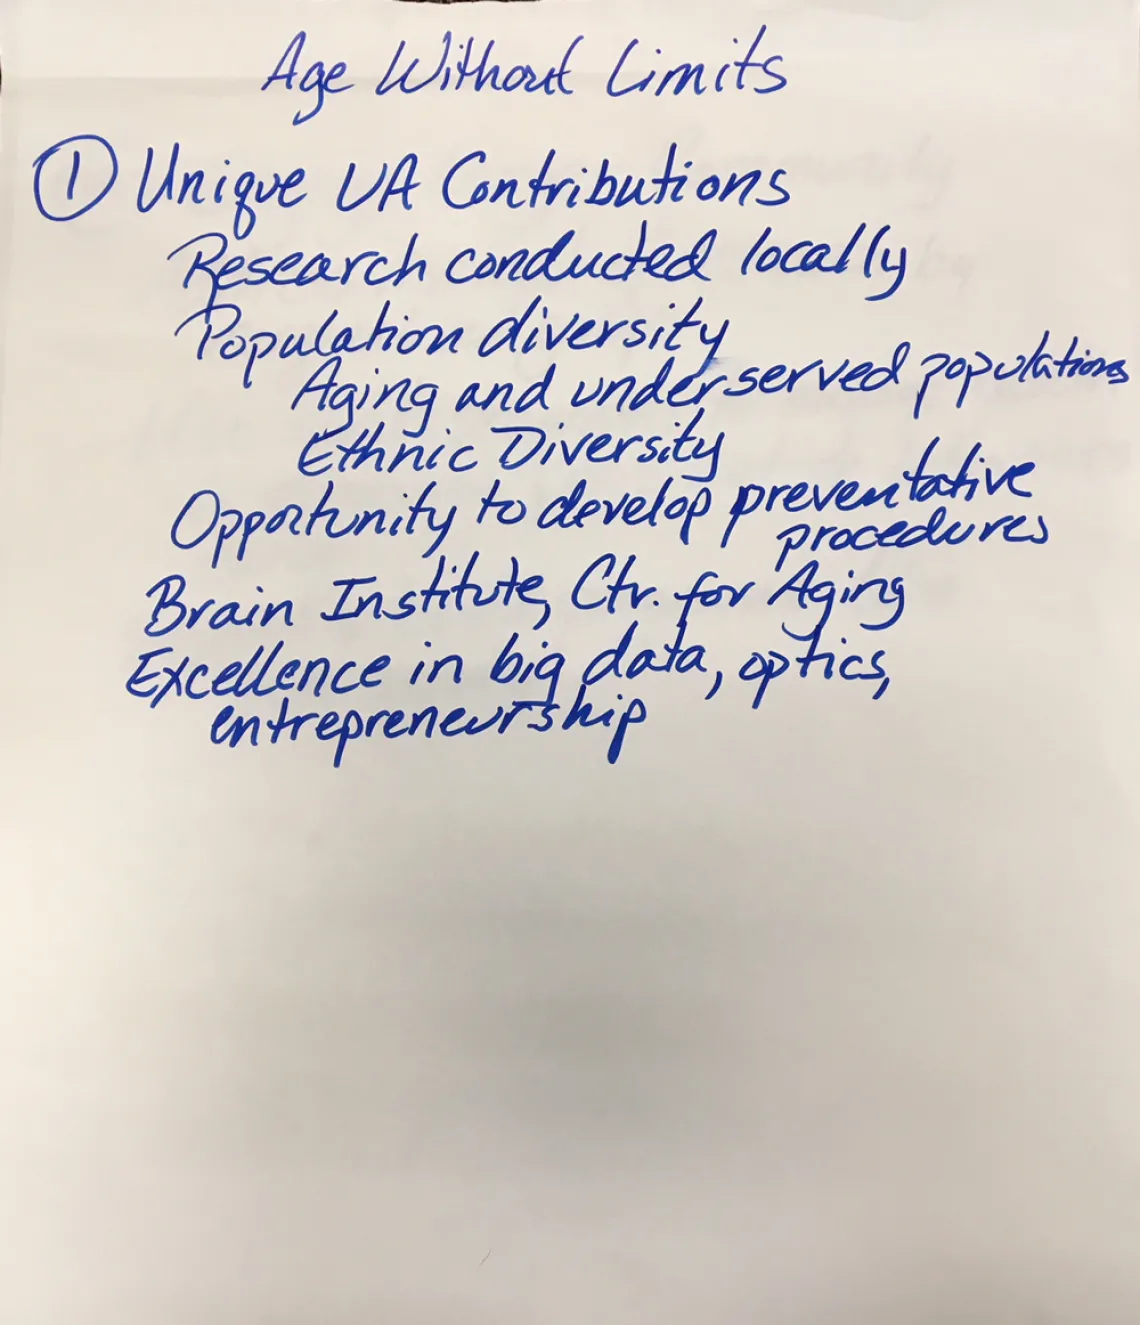 Age Without Limits
① Unique UA Contributions
Research conducted locally
Population diversity
Aging and underserved populations
Ethnic Diversity
Opportunity to develop preventative
procedures
Brain Institute, Ctr. for Aging
Excellence in big data, optics,
entrepreneurship